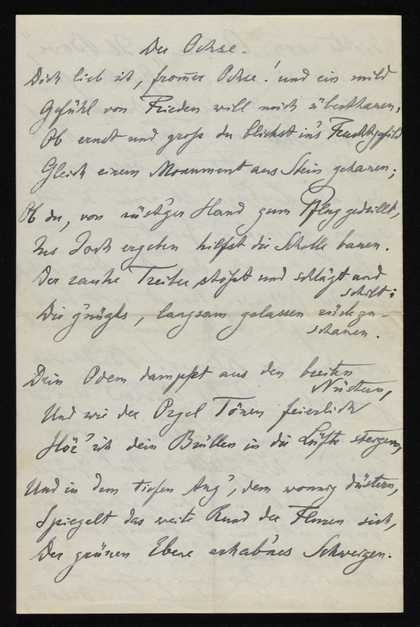 Der Ochse.
Dich lieb ich, frommer Ochse! und ein mild
Gefühl von Frieden will mich überthauen,
Ob ernst und groß du blickst in's Fruchtgefild
Gleich einem Monument aus Stein gehauen;
Ob du, von rüst'ger Hand zum Pflug gedrillt,
Ins Joch ergeben hilfst die Scholle bauen.
Der rauhe Treiber, stößt und schlägt und
schilt:
Dir g'nügts, langsam gelassen rückzu-
schauen.
Dein Odem dampfet aus den breiten
Nüstern,
Und wie der Orgel Tönen feierlich
Hör' ich dein Brüllen in die Lüfte steigen,
Und in dem tiefen Aug', dem wonnig düstern,
Spiegelt das weite Rund der Fluren sich,
Der grünen Ebene erhab'nes Schweigen.